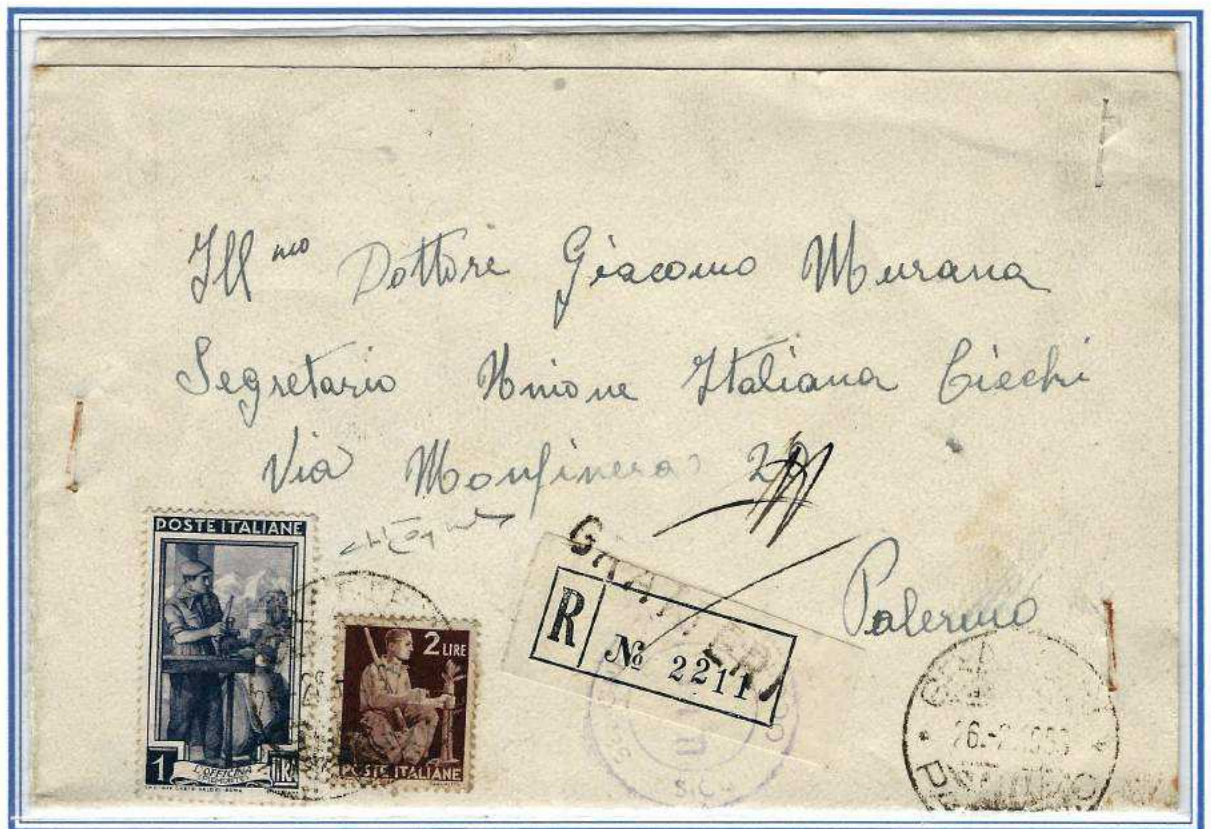 Ill mo Dottore Giacomo Murana
Segretario Unione Italiana Ciechi
Via Monfinera
Palermo
POSTE ITALIANE
1
L'OFFICINA
LIRA
2 LIRE
POSTE ITALIANE
GRATTERI
R
№ 2211